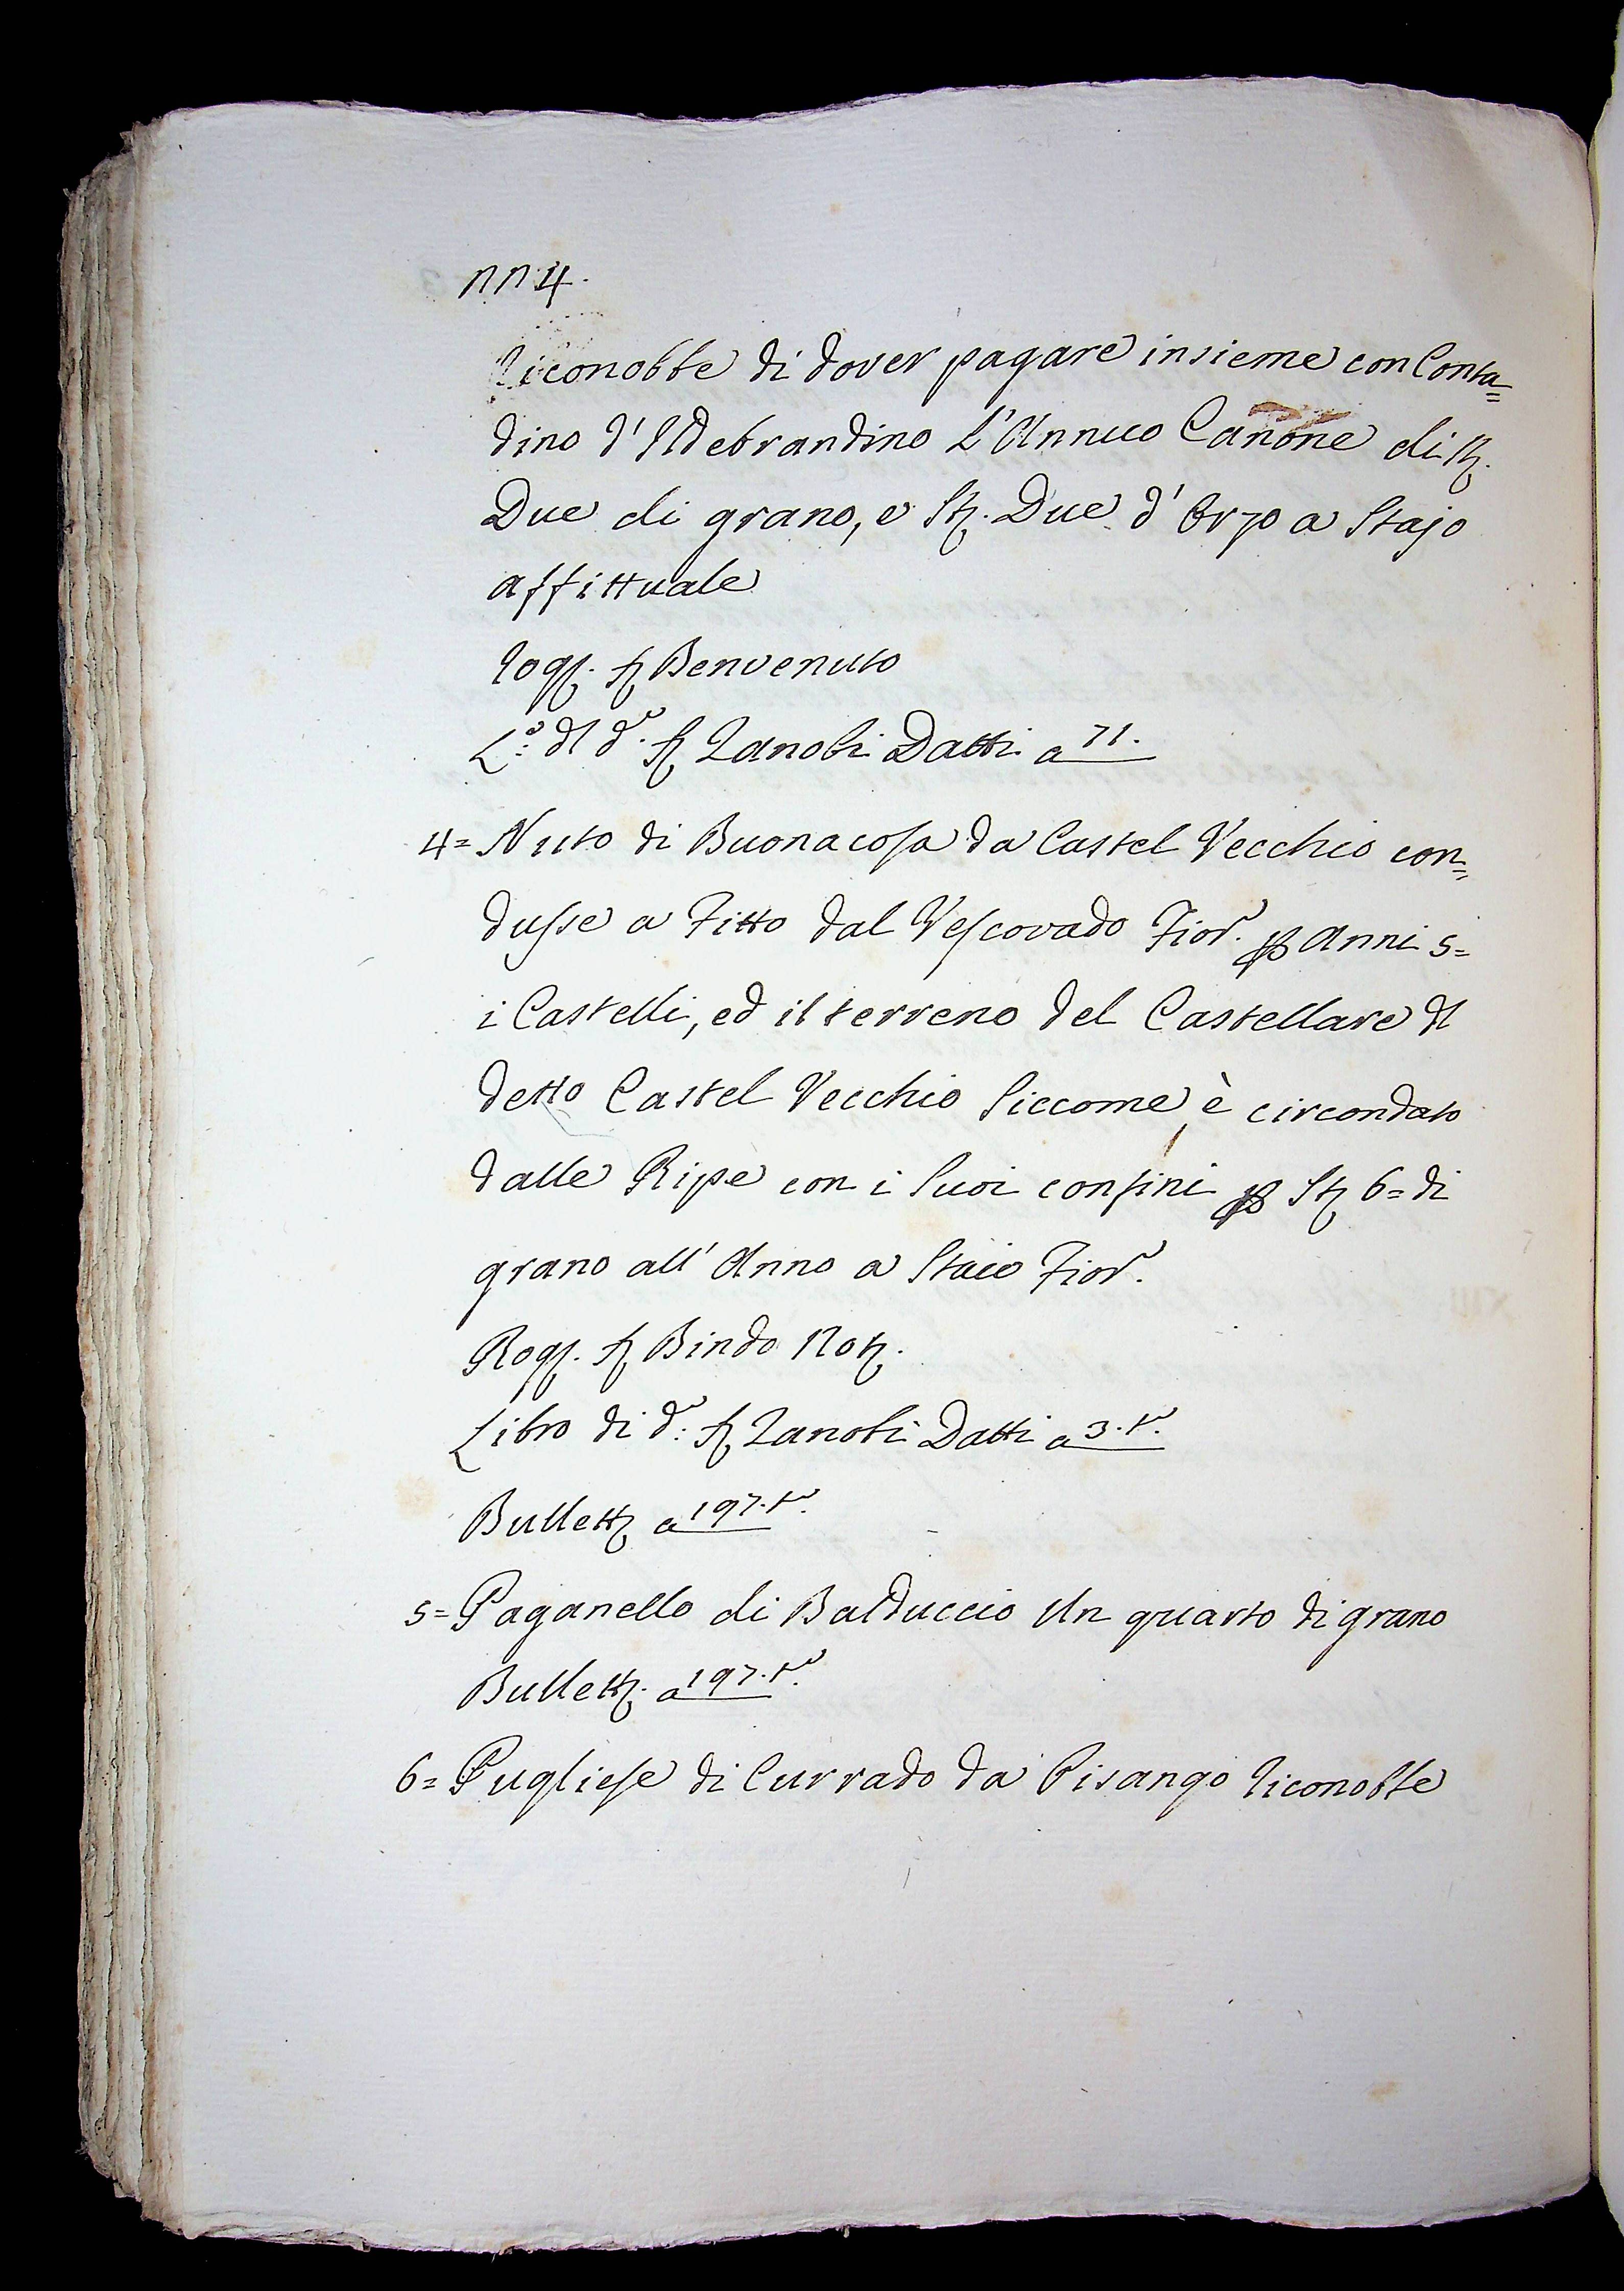 1114.
riconobbe di dover pagare insieme con Conta=
dino d'Ildebrandino L'Annuo Canone di St.
Due di grano, e St. Due d'Orzo a Stajo
affittuale
rog. Sr Benvenuto
L.o dl do. Sr Zanobi Datti a 71.
4= Nuto di Buonacosa da Castel Vecchio con=
dusse a Fitto dal Vescovado Fior.o p Anni 5=
i Castelli, ed il terreno del Castellare dl
detto Castel Vecchio Siccome è circondato
dalle Ripe con i Suoi confini p St 6= di
grano all'Anno a Staio Fior.o
Rog. Sr Bindo Not.
Libro di do: Sr Zanobi Datti a 3. to.
Bullett a 197. to.
5= Paganello di Balduccio Un quarto di grano
Bullett. a 197. to.
6= Pugliese di Currado da Pisango riconobbe